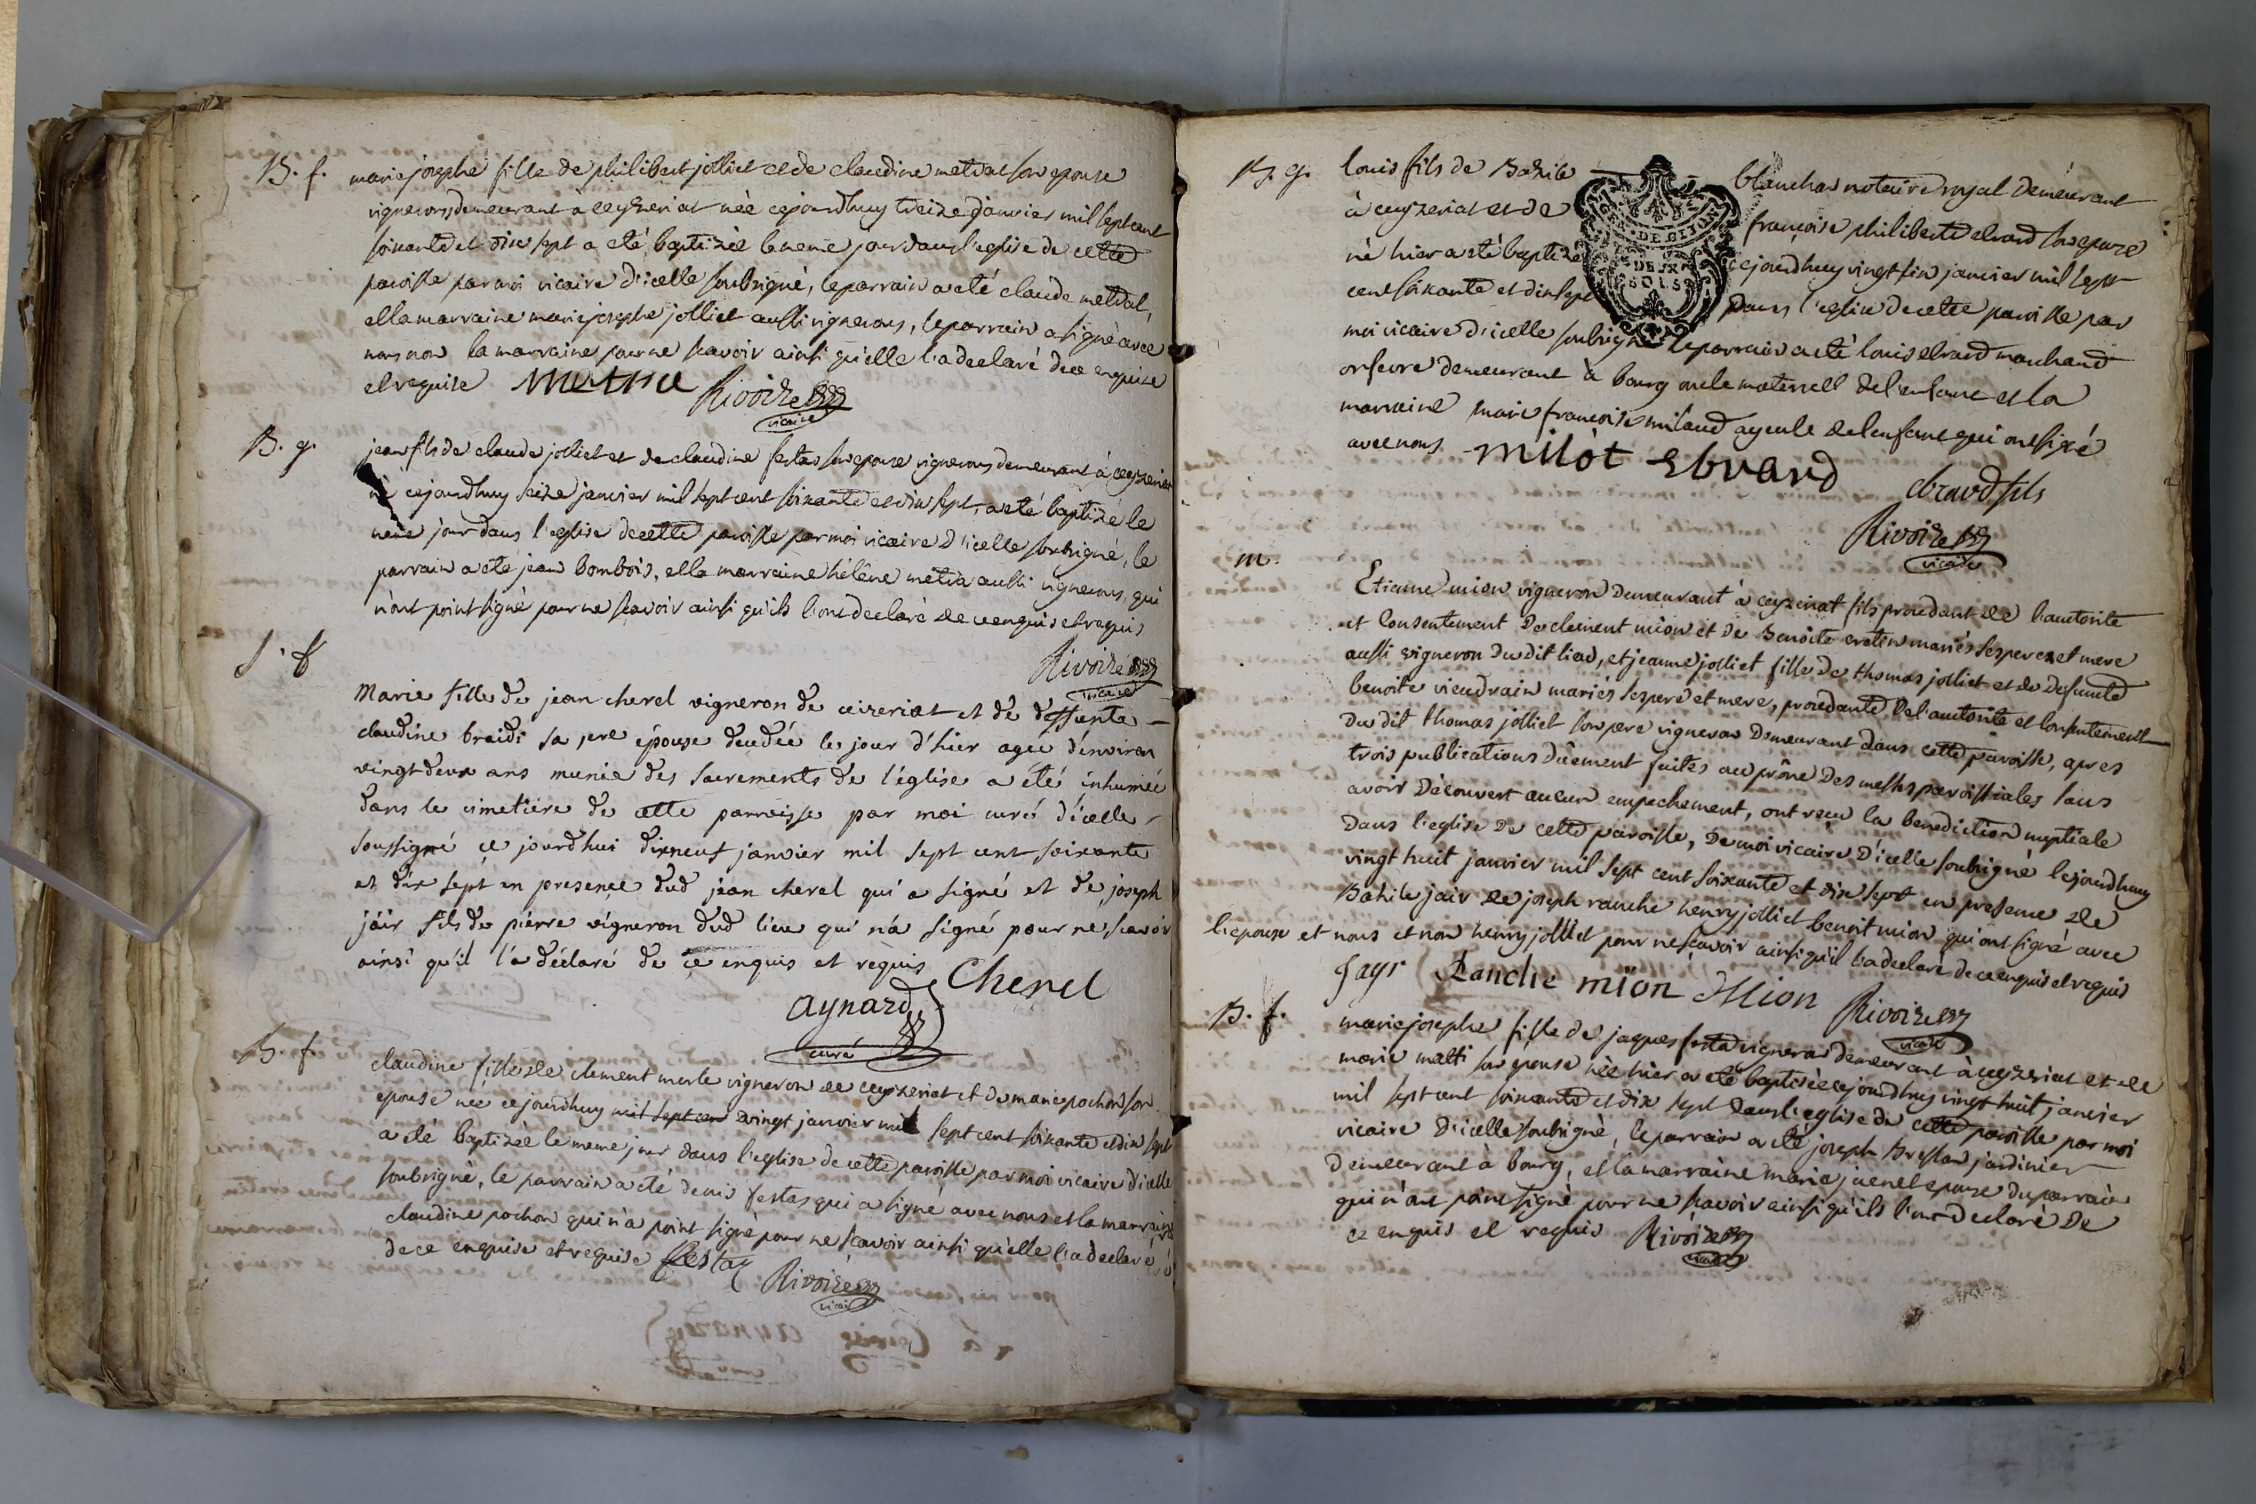 B. f.
marie josephe fille de philibert jolliet et de claudine metral son epouse
vignerons demeurant a ceyzeriat née cejourdhuy treize janvier mil sept cent
soixante et dix sept a eté baptizée le meme jour dans l'eglise de cette
paroisse par moi vicaire d'icelle soubsigné, le parrain a eté claude metral,
et la marraine marie josephe jolliet aussi vignerons, le parrain a signé avec
nous non la marraine pour ne scavoir ainsi qu'elle l'a declaré de ce enquise
et requise metral Rivoire
vicaire
B. g.
jean fils de claude jolliet et de claudine festas son epouse vignerons demeurant à ceyzeriat
né cejourdhuy seize janvier mil sept cent soixante et dix sept, a eté baptizé le
meme jour dans l'eglise de cette paroisse par moi vicaire d'icelle soubsigné, le
parrain a eté jean bombois, et la marraine hélène metra aussi vignerons, qui
n'ont point signé pour ne scavoir ainsi qu'ils l'ont declaré de ce enquis et requis
Rivoire
vicaire
S. f
Marie fille de jean cherel vigneron de ceizeriat et de deffunte
claudine braidi sa 1ere épouse decedée le jour d'hier agée d'environ
vingt deux ans munie des sacrements de l'église a été inhumée
dans le cimetiere de cette parroisse par moi curé d'icelle
soussigné ce jourdhui dixneuf janvier mil sept cent soixante
et dix sept en presence dud jean cherel qui a signé et de joseph
jäir fils de pierre vigneron dud lieu qui n'a signé pour ne scavoir
ainsi qu'il l'a déclaré de ce enquis et requis
Cherel
aynard
curé
B. f.
claudine fille de clement merle vigneron de ceyzeriat et de marie pochon son
epouse née cejourdhuy mil sept cent vingt janvier mil sept cent soixante et dix sept
a eté baptizée le meme jour dans l'eglise de cette paroisse par moi vicaire d'icelle
soubsigné, le parrain a eté denis festas qui a signé avec nous et la marraine
claudine pochon qui n'a point signé pour ne scavoir ainsi qu'elle l'a declaré
de ce enquise et requise festaz Rivoire
vicaire
B. g.
louis fils de Bazile blanchas notaire royal demeurant
à ceyzeriat et de françoise philiberte ebrard son epouze
né hier a eté baptizé cejourdhuy vingt six janvier mil sept
cent soixante et dix sept dans l'eglise de cette paroisse par
moi vicaire d'icelle soubsigné le parrain a eté louis ebrard marchand
orfevre demeurant à bourg oncle maternell de l'enfant et la
marraine marie françoise milaud ayeule de l'enfant qui ont signé
avec nous milòt Ebrard
ebrard fils
Rivoire
vicaire
GEN. DE DIJON
DEUX
SOLS
m.
Etienne mion vigneron demeurant à ceyzeriat fils procedant de l'autorité
et consentement de clement mion et de benoite cretin mariés ses pere et mere
aussi vigneron dudit lieu, et jeanne jolliet fille de thomas jolliet et de defunte
benoite vieudrain mariés ses pere et mere, procedante de l'autorité et consentement
dudit thomas jolliet son pere vigneron demeurant dans cette paroisse, apres
trois publications dûement faites au prône des messes paroissiales sans
avoir découvert aucun empechement, ont reçu la benediction nuptiale
dans l'eglise de cette paroisse, de moi vicaire d'icelle soubsigné cejourdhuy
vingt huit janvier mil sept cent soixante et dix sept en presence de
Bazile jair de joseph ranche henry jolliet benoit mion qui ont signé avec
l'epoux et nous et non henry jolliet pour ne scavoir ainsi qu'il l'a declaré de ce enquis et requis
Jayr Ranche mion Mion Rivoire
vicaire
B. f.
marie josephe fille de jaques festa vigneron demeurant à ceyzeriat et de
marie matti son epouse née hier a eté baptizée cejourdhuy vingt huit janvier
mil sept cent soixante et dix sept dans l'eglise de cette paroisse par moi
vicaire d'icelle soubsigné, le parrain a eté joseph Bressan jardinier
demeurant à bourg, et la marraine marie juenet epouze du parrain
qui n'ont point signé pour ne scavoir ainsi qu'ils l'ont declaré de
ce enquis et requis Rivoire
vicaire